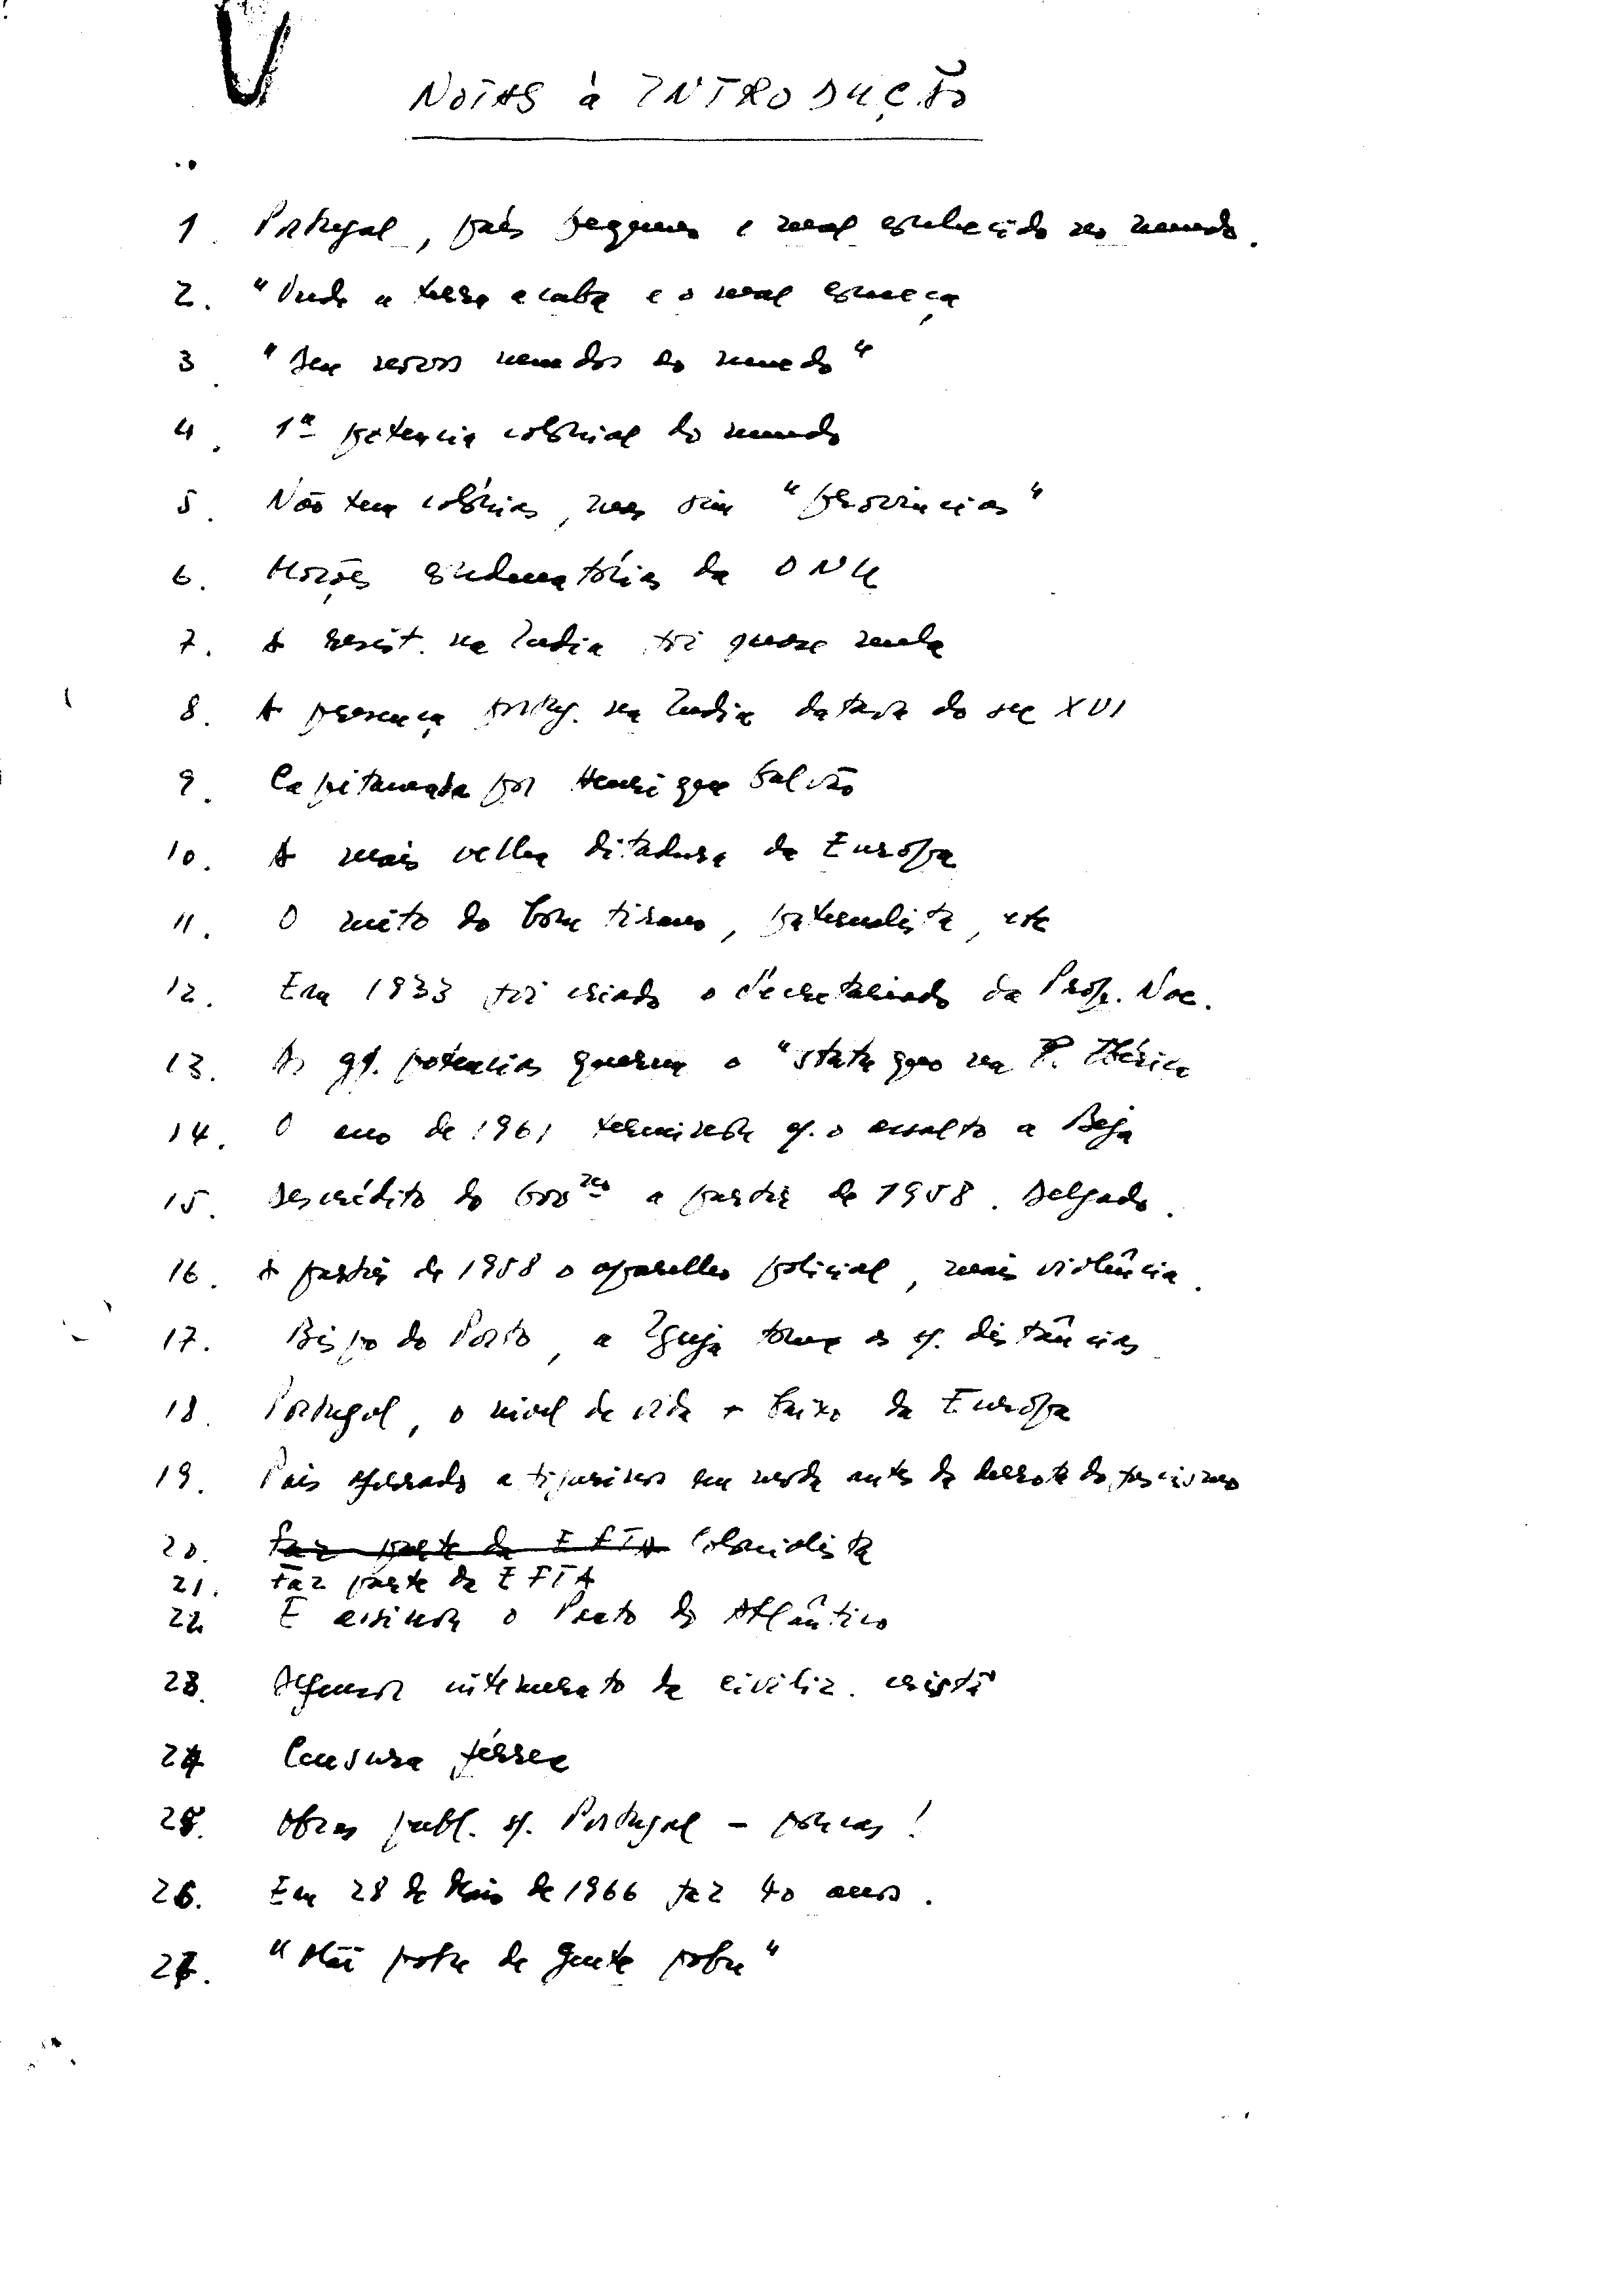 NOTAS à INTRODUÇÃO
1. Portugal, país pequeno e mal conhecido no mundo.
2. "Onde a terra acaba e o mar começa
3. "Deu novos mundos ao mundo"
4. 1ª potencia colonial do mundo
5. Não tem colónias, mas sim "provincias"
6. Moções condenatórias da ONU
7. A resist. na India foi quase nula
8. A presença portug. na India datava do sec XVI
9. Capitaneada por Henrique Galvão
10. A mais velha ditadura da Europa
11. O mito do bom tirano, paternalista, etc
12. Em 1933 foi criado o Secretariado da Prop. Nac.
13. As gr. potencias querem o "statu quo na P. Ibérica
14. O ano de 1961 terminou c/. o assalto a Beja
15. Descrédito do Govno a partir de 1958. Delgado.
16. A partir de 1958 o aparelho policial, mais violência.
17. Bispo do Porto, a Igreja toma as s/. distâncias
18. Portugal, o nivel de vida + baixo da Europa
19. Pais aferrado a figurinos em moda antes da derrota do fascismo
20. Faz parte da EFTA Colonialista
21. Faz parte da EFTA
22. E assinou o Pacto do Atlântico
23. Defensor intemerato da civiliz. cristã
24 Censura férrea
25. Obras publ. s/. Portugal - poucas!
26. Em 28 de Maio de 1966 faz 40 anos.
27. "Mãe pobre de gente pobre"